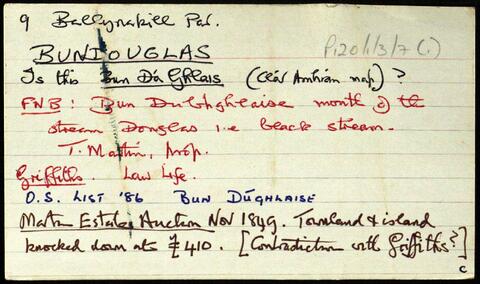 9 Ballynakill Par.
P120/1/3/7 (1)
BUNDOUGLAS
Is this Bun Dá Ghlais (Clár Amhrán map) ?
FNB : Bun Dubhghlaise month of the
stream Douglas i.e black stream.
T. Martin, prop.
Griffiths. Law Life.
O.S. LIST '86 BUN DÚGHLAISE
Martin Estate Auction Nov 1849. Townland & island
knocked down at £410. [Contradiction with Griffiths?]
c